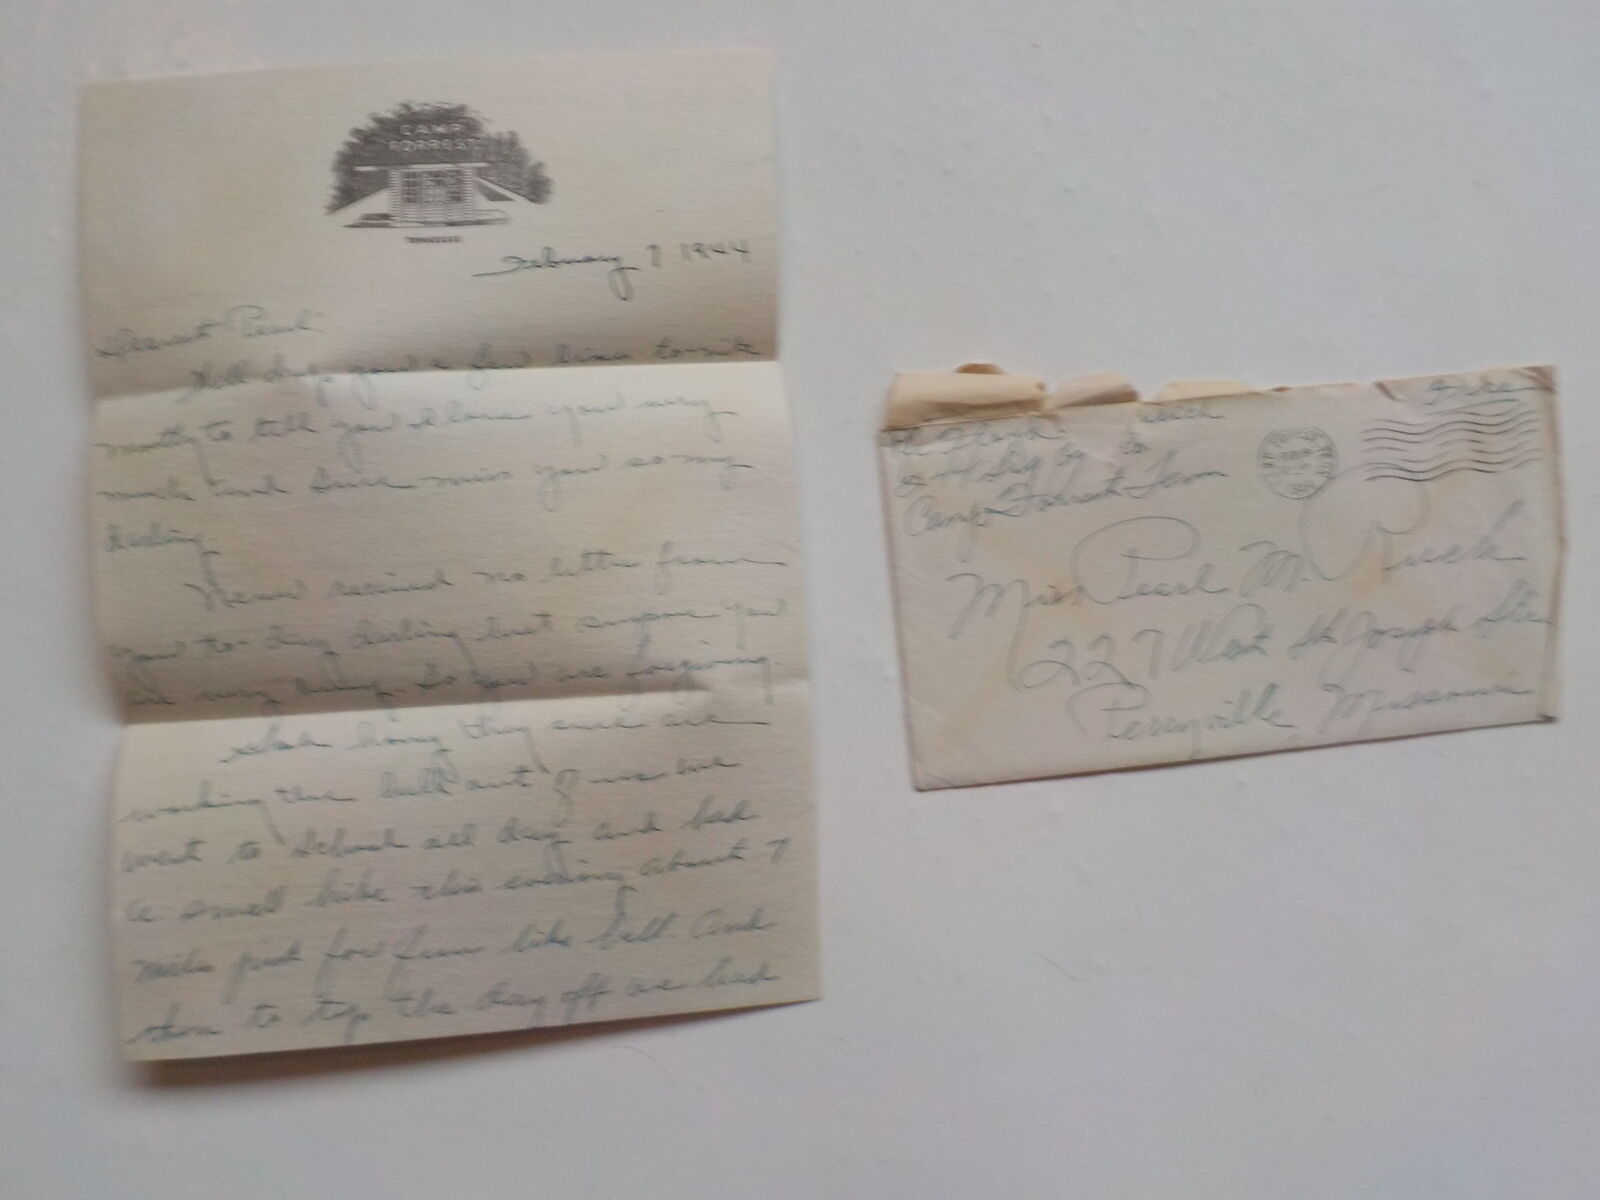 CAMP
FORREST
TENNESSEE
February 7 1944
Dearest Pearl:
Well hug you a few lines to-nite
mostly to tell you I love you very
much and sure miss you so my
darling.
received no letter from
you to-day darling but suppose you
are very busy. So you are forgiving.
honey they sure are
working the hell out of us we
went to school all day and had
a small hike this evening about 7
miles just for fun like hell. And
then to top the day off we had
Free
Floyd
Sig Co
Camp Forrest Tenn
Miss Pearl M. Ruck
227 West St Joseph Str
Perryville, Missouri